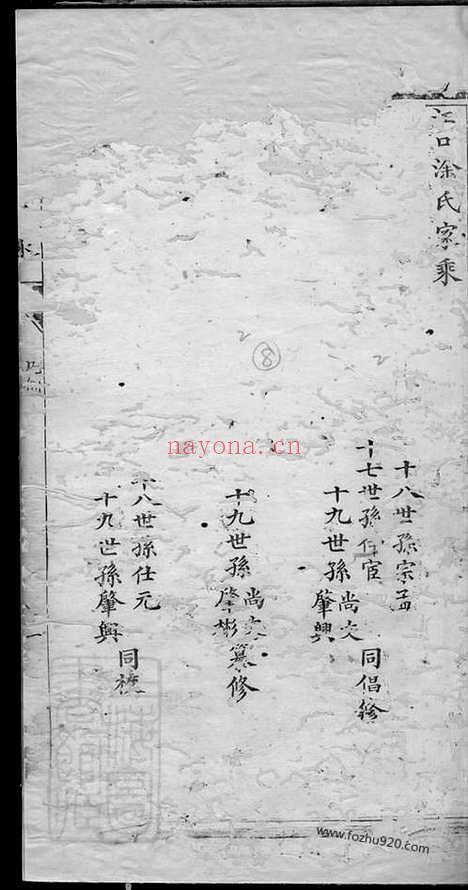 江口涂氏家乘
十八世孫宗孟
十七世孫仕宦
十九世孫尚文
肇興
同倡修
十九世孫尚文
肇彬
纂修
十八世孫仕元
十九世孫肇興
同校
⑧
nayona.cn
www.fozhu920.com